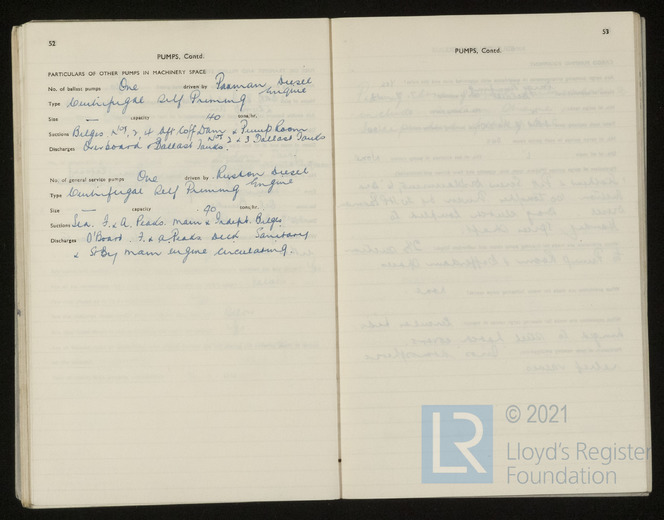 52
PUMPS, Contd.
PARTICULARS OF OTHER PUMPS IN MACHINERY SPACE
No. of ballast pumps One driven by Paxman Diesel Engine
Type Centrifugal Self Priming
Size — capacity 40 tons/hr.
Suctions Bilges, Nos 1, 2, 4 Aft Coff Dam & Pump Room
Discharges Overboard & Ballast Tanks. Nos 2 & 3 Ballast Tanks
No. of general service pumps One driven by Ruston Diesel Engine
Type Centrifugal Self Priming
Size — capacity 90 tons/hr.
Suctions Sea. F. & A. Peaks. Main & Indept. Bilges
Discharges O'Board. F. & A. Peaks Deck Sanitary
& St By main engine circulating.
53
PUMPS, Contd.
LR
© 2021
Lloyd's Register
Foundation